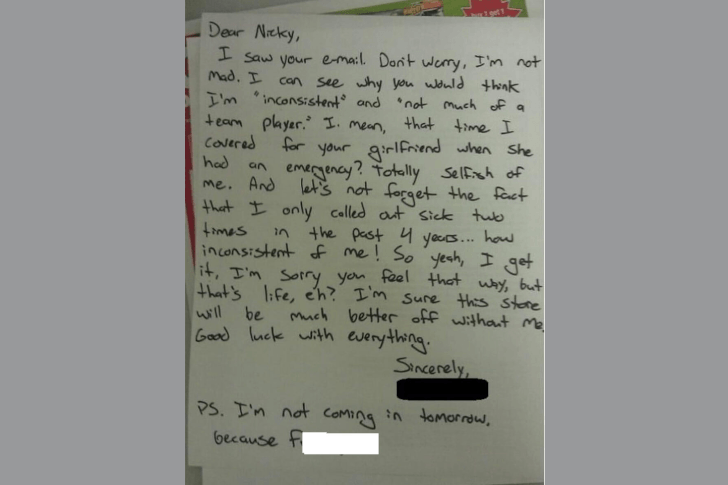 Dear Nicky,
I saw your e-mail. Don't worry, I'm not
mad. I can see why you would think
I'm "inconsistent" and "not much of a
team player." I. mean, that time I
covered for your girlfriend when she
had an emergency? Totally selfish of
me. And let's not forget the fact
that I only called out sick two
times in the past 4 years... how
inconsistent of me! So yeah, I get
it, I'm sorry you feel that way, but
that's life, eh? I'm sure this store
will be much better off without me.
Good luck with everything.
Sincerely,
PS. I'm not coming in tomorrow,
because f